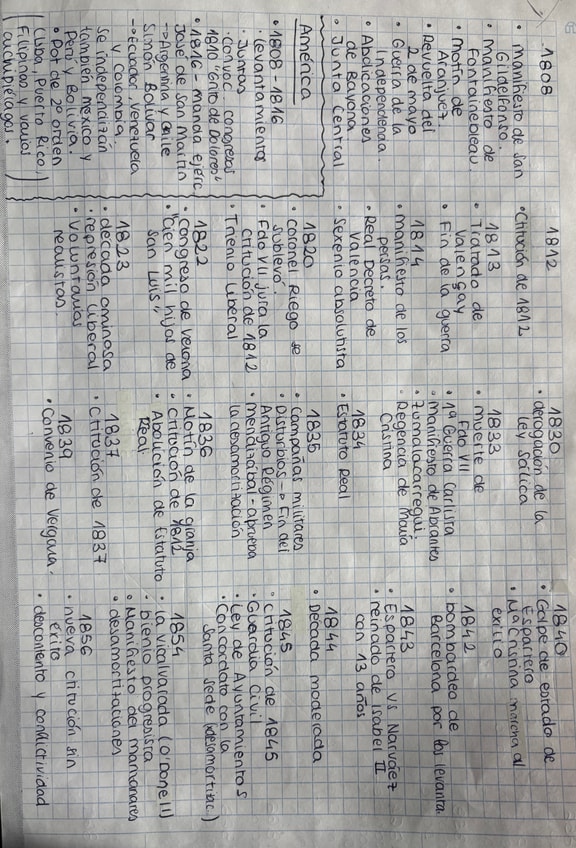 1808
• manifiesto de San
Gildefonso.
• manifiesto de
Fontainebleau.
• motín de
Aranjuez
• Revuelta del
2 de mayo
• Guerra de la
Independencia.
• Abdicaciones
de Bayona
• Junta Central
América
• 1808 - 1816
• Levantamientos
• Juntas
• convoc. congresos
1810 "Grito de Dolores"
• 1816 - manda ejerc.
José de San Martín
-> Argentina y Chile
Simón Bolívar
-> Ecuador, Venezuela
y Colombia
Se independizan
también México y
Perú y Bolivia.
• Por de 2º orden
(Cuba, Puerto Rico,
Filipinas y varios
archipiélagos.)
1812
• Ctitución de 1812
1813
• Tratado de
Valençay
• Fin de la guerra
1814
• manifiesto de los
persas.
• Real Decreto de
Valencia
• Sexenio absolutista
1820
• coronel Riego se
sublevó.
• Fdo VII jura la
ctitución de 1812
• Trienio Liberal
1822
• Congreso de Verona
• "Cien mil hijos de
San Luis"
1823
• década ominosa
• represión liberal
• Voluntarios
realistas.
1830
• derogación de la
ley sálica
1833
• muerte de
Fdo VII
• 1ª Guerra Carlista
• manifiesto de Abrantes
• Zumalacarregui.
• Regencia de María
Cristina
1834
• Estatuto Real
1835
• Campañas militares
• Disturbios -> Fin del
Antiguo Régimen
• mendizábal - aprueba
la desamortización
1836
• Motín de la granja
• ctitución de 1812
• Abolición de Estatuto
Real
1837
• ctitución de 1837
1839
• Convenio de Vergara.
1840
• Golpe de estado de
Espartero
• Mª Cristina marcha al
exilio
1842
• bombardeo de
Barcelona por los levanta.
1843
• Espartero vs Narváez
• reinado de Isabel II
con 13 años
1844
• Década moderada
1845
• ctitución de 1845
• Guardia Civil
• Ley de Ayuntamientos
• Concordato con la
Santa Sede (desamortizac)
1854
• la vicalvarada (O'Donell)
• bienio progresista
• Manifiesto del manzanares
• desamortizaciones
1856
• nueva ctitución sin
éxito
• descontento y conflictividad